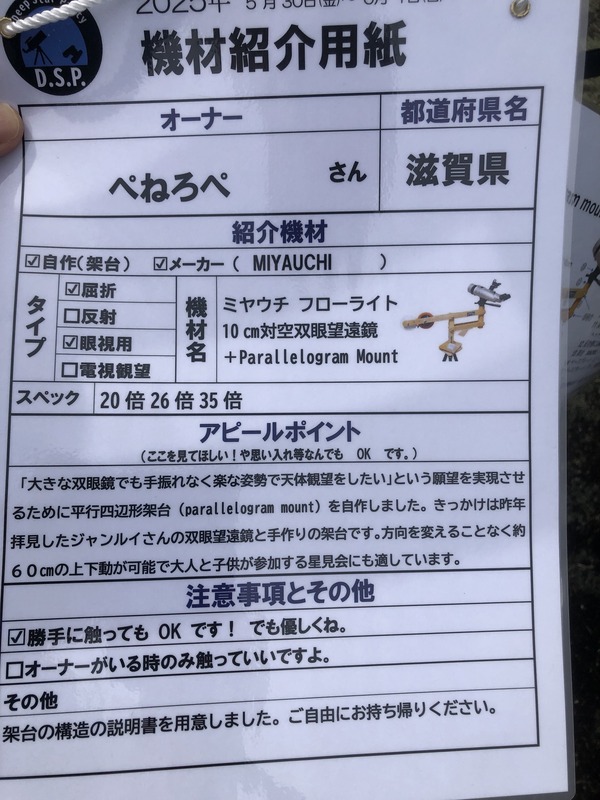 Deep Star Party
D.S.P.
2025年 5月30日(金)~
機材紹介用紙
オーナー
都道府県名
ぺねろぺ さん
滋賀県
紹介機材
☑自作(架台) ☑メーカー( MIYAUCHI )
タイプ
☑屈折
☐反射
☑眼視用
☐電視観望
機材名
ミヤウチ フローライト
10㎝対空双眼望遠鏡
+Parallelogram Mount
スペック
20倍26倍35倍
アピールポイント
(ここを見てほしい!や思い入れ等なんでも OK です。)
「大きな双眼鏡でも手振れなく楽な姿勢で天体観望をしたい」という願望を実現させ
るために平行四辺形架台(parallelogram mount)を自作しました。きっかけは昨年
拝見したジャンルイさんの双眼望遠鏡と手作りの架台です。方向を変えることなく約
60㎝の上下動が可能で大人と子供が参加する星見会にも適しています。
注意事項とその他
☑勝手に触っても OK です! でも優しくね。
☐オーナーがいる時のみ触っていいですよ。
その他
架台の構造の説明書を用意しました。ご自由にお持ち帰りください。